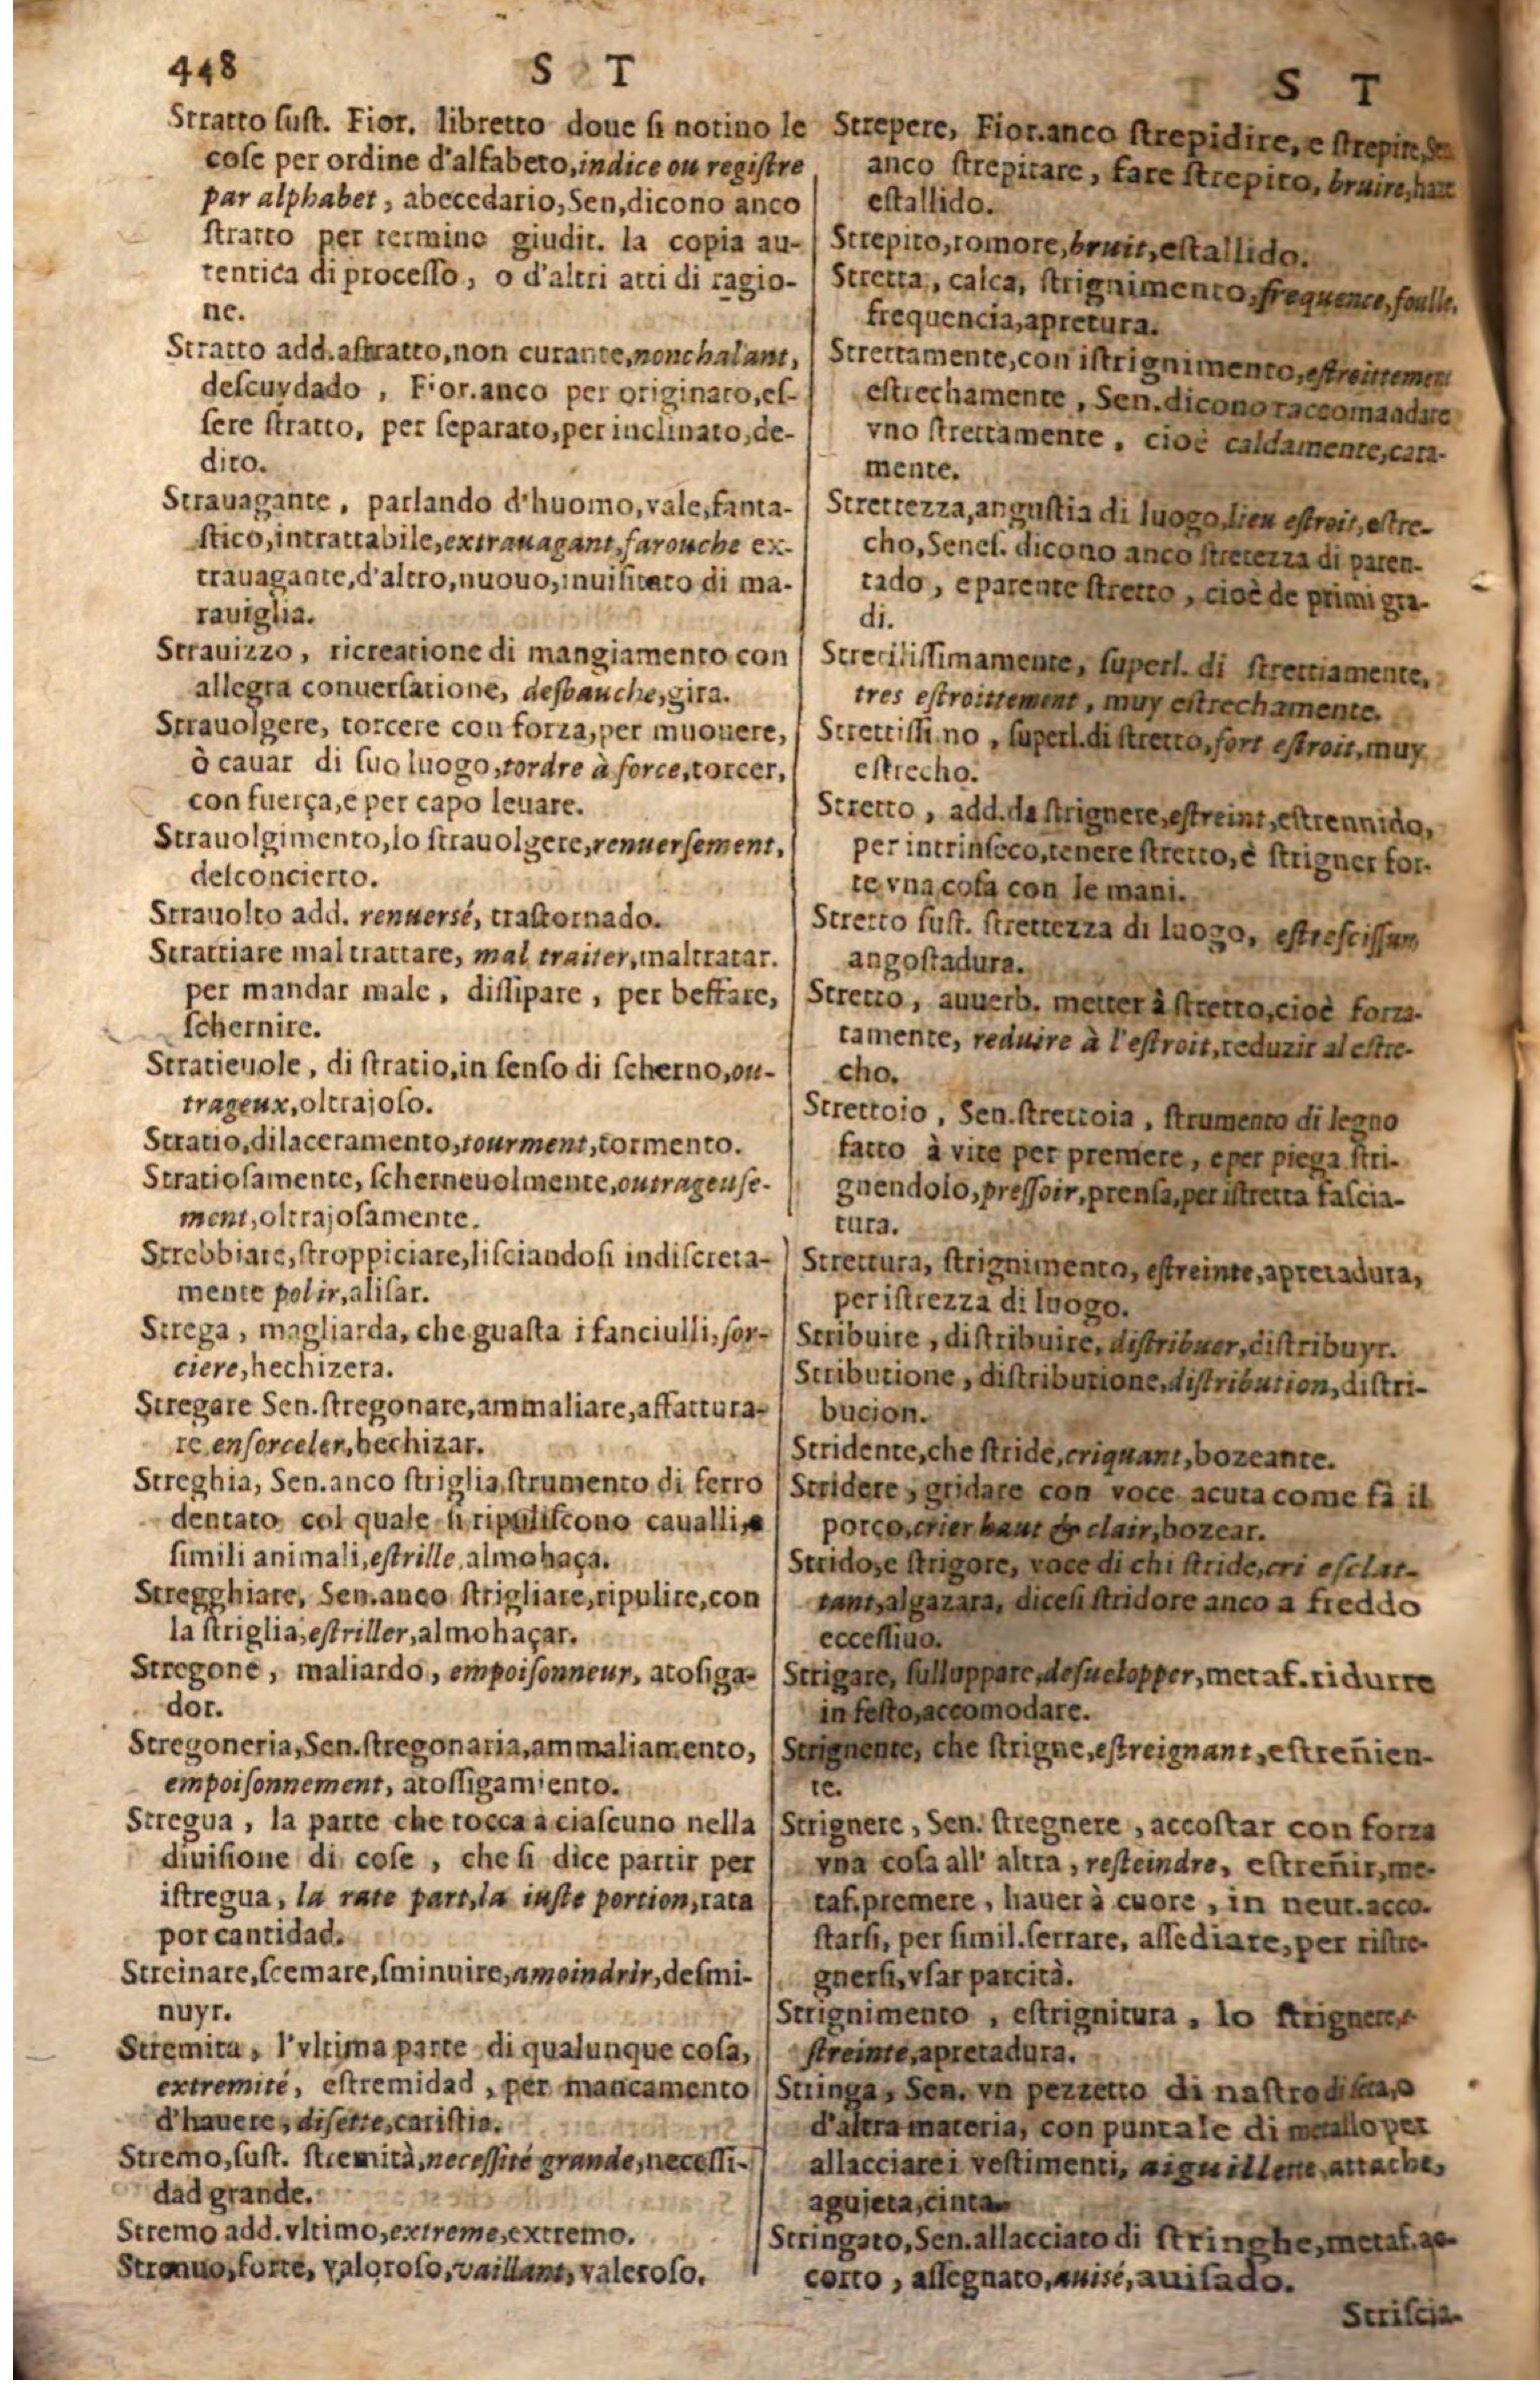 448
S T
Stratto ſuſt. Fior. libretto doue ſi notino le
coſe per ordine d'alfabeto, indice ou regiſtre
par alphabet, abecedario, Sen, dicono anco
ſtratto per termine giudit. la copia au-
tentica di proceſſo, o d'altri atti di ragio-
ne.
Stratto add. aſtratto, non curante, nonchalant,
deſcuydado, Fior. anco per originato, eſ-
ſere ſtratto, per ſeparato, per inclinato, de-
dito.
Strauagante, parlando d'huomo, vale, fanta-
ſtico, intrattabile, extrauagant, farouche ex-
trauagante, d'altro, nuouo, inuiſitato di ma-
rauiglia.
Strauizzo, ricreatione di mangiamento con
allegra conuerſatione, desbauche, gira.
Strauolgere, torcere con forza, per muouere,
ò cauar di ſuo luogo, tordre à force, torcer,
con fuerça, e per capo leuare.
Strauolgimento, lo ſtrauolgere, renuerſement,
deſconcierto.
Strauolto add. renuersé, traſtornado.
Strattiare mal trattare, mal traiter, maltratar.
per mandar male, diſſipare, per beffare,
ſchernire.
Stratieuole, di ſtratio, in ſenſo di ſcherno, ou-
trageux, oltrajoſo.
Stratio, dilaceramento, tourment, tormento.
Stratioſamente, ſcherneuolmente, outrageuſe-
ment, oltrajoſamente.
Strebbiare, ſtroppiciare, liſciandoſi indiſcreta-
mente polir, aliſar.
Strega, magliarda, che guaſta i fanciulli, ſor-
ciere, hechizera.
Stregare Sen. ſtregonare, ammaliare, affattura-
re enſorceler, hechizar.
Streghia, Sen. anco ſtriglia, ſtrumento di ferro
dentato col quale ſi ripuliſcono caualli, e
ſimili animali, eſtrille, almohaça.
Stregghiare, Sen. anco ſtrigliare, ripulire, con
la ſtriglia, eſtriller, almohaçar.
Stregone, maliardo, empoiſonneur, atoſiga-
dor.
Stregoneria, Sen. ſtregonaria, ammaliamento,
empoiſonnement, atoſſigamiento.
Stregua, la parte che tocca a ciaſcuno nella
diuiſione di coſe, che ſi dice partir per
iſtregua, la rate part, la iuſte portion, rata
por cantidad.
Streinare, ſcemare, ſminuire, amoindrir, deſmi-
nuyr.
Stremita, l'vltima parte di qualunque coſa,
extremité, eſtremidad, per mancamento
d'hauere, diſette, cariſtia.
Stremo, ſuſt. ſtremità, neceſſité grande, neceſſi-
dad grande.
Stremo add. vltimo, extreme, extremo.
Strenuo, forte, valoroſo, vaillant, valeroſo.
S T
Strepere, Fior. anco ſtrepidire, e ſtrepire, Sen.
anco ſtrepitare, fare ſtrepito, bruire, haze
eſtallido.
Strepito, romore, bruit, eſtallido.
Stretta, calca, ſtrignimento, frequence, foulle,
frequencia, apretura.
Strettamente, con iſtrignimento, eſtroittement
eſtrechamente, Sen. dicono raccomandare
vno ſtrettamente, cioè caldamente, cara-
mente.
Strettezza, anguſtia di luogo, lieu eſtroit, eſtre-
cho, Seneſ. dicono anco ſtretezza di paren-
tado, e parente ſtretto, cioè de primi gra-
di.
Stretiliſſimamente, ſuperl. di ſtrettiamente,
tres eſtroittement, muy eſtrechamente.
Strettiſſi.no, ſuperl. di ſtretto, fort eſtroit, muy
eſtrecho.
Stretto, add. da ſtrignere, eſtreint, eſtrennido,
per intrinſeco, tenere ſtretto, è ſtrigner for-
te vna coſa con le mani.
Stretto ſuſt. ſtrettezza di luogo, eſtreſciſſure,
angoſtadura.
Stretto, auuerb. metter à ſtretto, cioè forza-
tamente, reduire à l'eſtroit, reduzir al eſtre-
cho.
Strettoio, Sen. ſtrettoia, ſtrumento di legno
fatto à vite per premere, e per piega ſtri-
gnendolo, preſſoir, prenſa, per iſtretta faſcia-
tura.
Strettura, ſtrignimento, eſtreinte, apretadura,
per iſtrezza di luogo.
Stribuire, diſtribuire, diſtribuer, diſtribuyr.
Stributione, diſtributione, diſtribution, diſtri-
bucion.
Stridente, che ſtride, criquant, bozeante.
Stridere, gridare con voce acuta come fà il
porco, crier haut & clair, bozear.
Strido, e ſtrigore, voce di chi ſtride, cri eſclat-
tant, algazara, diceſi ſtridore anco a freddo
ecceſſiuo.
Strigare, ſuiluppare, deſuelopper, metaf. ridurre
in ſeſto, accomodare.
Strignente, che ſtrigne, eſtreignant, eſtreñien-
te.
Strignere, Sen. ſtregnere, accoſtar con forza
vna coſa all' altra, reſteindre, eſtreñir, me-
taf. premere, hauer à cuore, in neut. acco-
ſtarſi, per ſimil. ſerrare, aſſediare, per riſtre-
gnerſi, vſar parcità.
Strignimento, eſtrignitura, lo ſtrignere, e-
ſtreinte, apretadura.
Stringa, Sen. vn pezzetto di naſtro di ſeta, o
d'altra materia, con puntale di metallo per
allacciare i veſtimenti, aiguillette, attache,
agujeta, cinta.
Stringato, Sen. allacciato di ſtringhe, metaf. ac-
corto, aſſegnato, auisé, auiſado.
Striſcia-